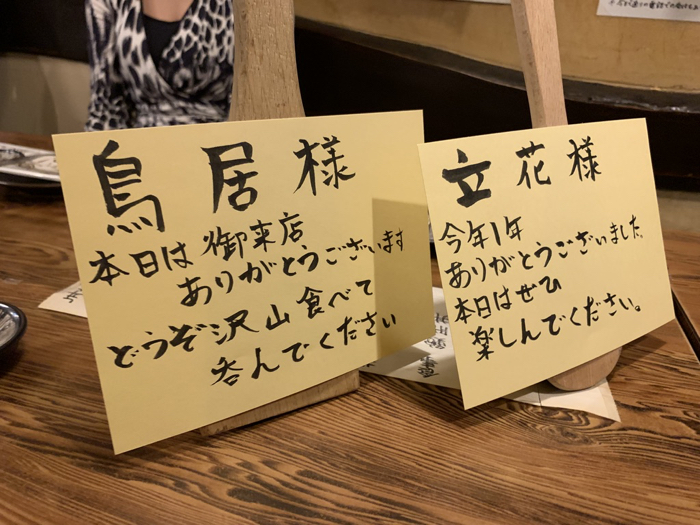 鳥居様
本日は御来店
ありがとうございます
どうぞ沢山食べて
呑んでください
立花様
今年1年
ありがとうございました。
本日はぜひ
楽しんでください。